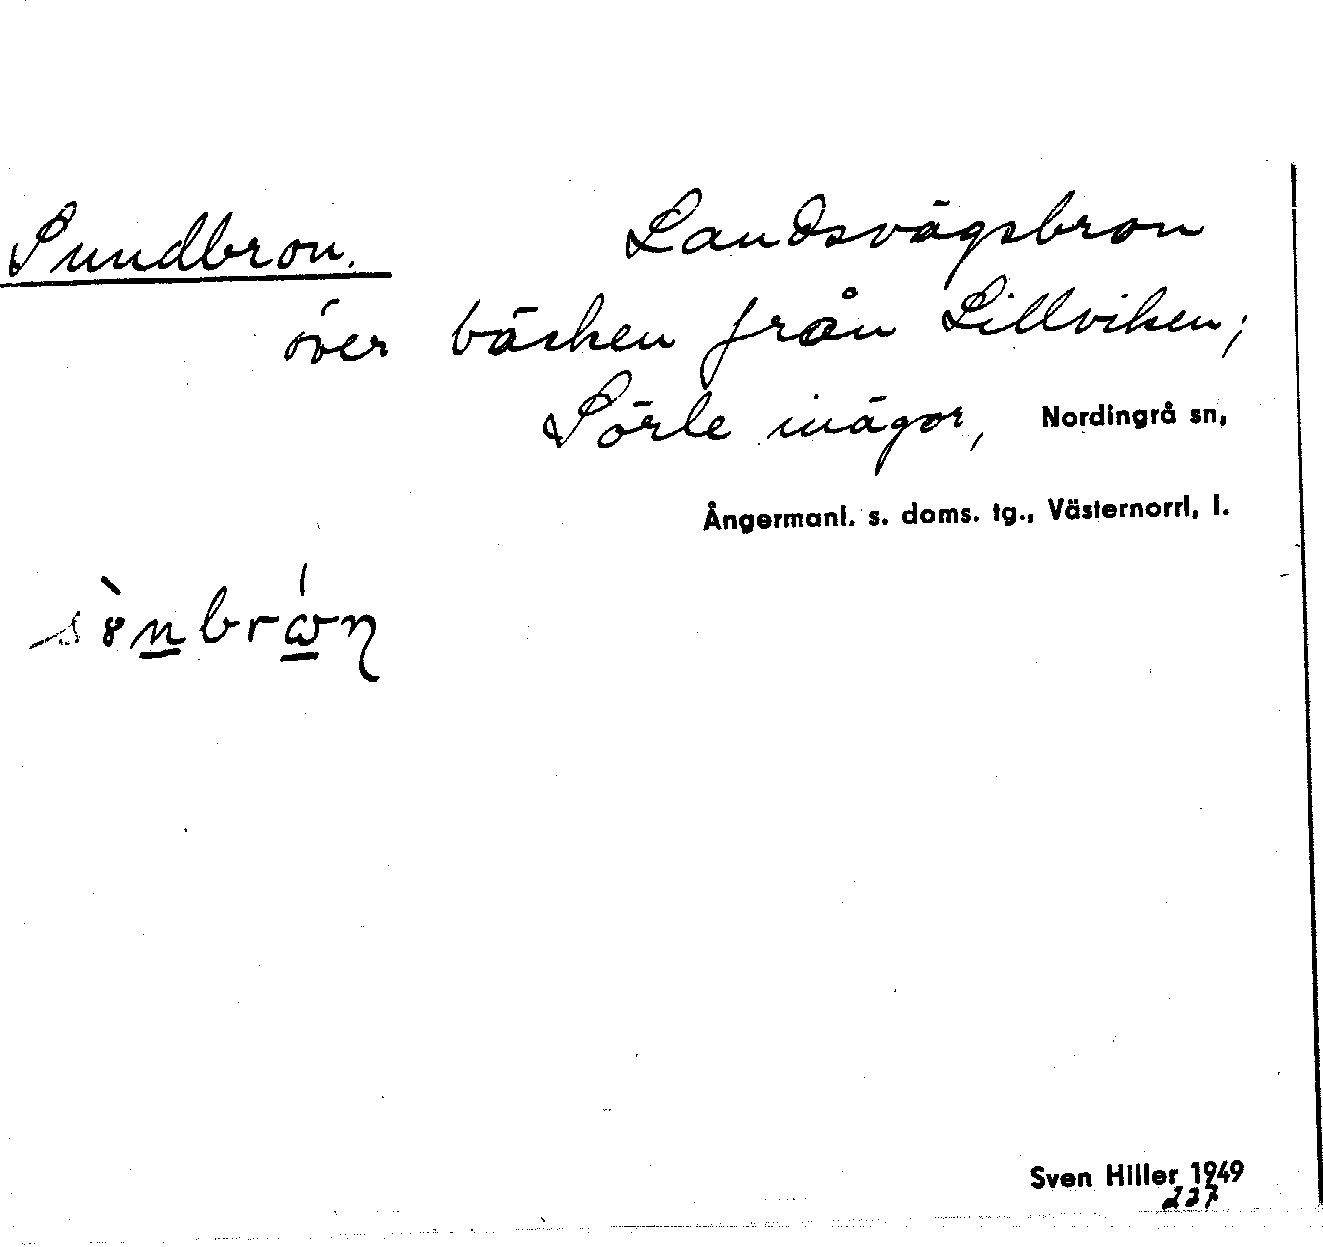 Sundbron. Landsvägsbron
över bäcken från Lillviken;
Sörle inägor, Nordingrå sn,
Ångermanl. s. doms. tg., Västernorrl, l.
Sven Hiller 1949
227